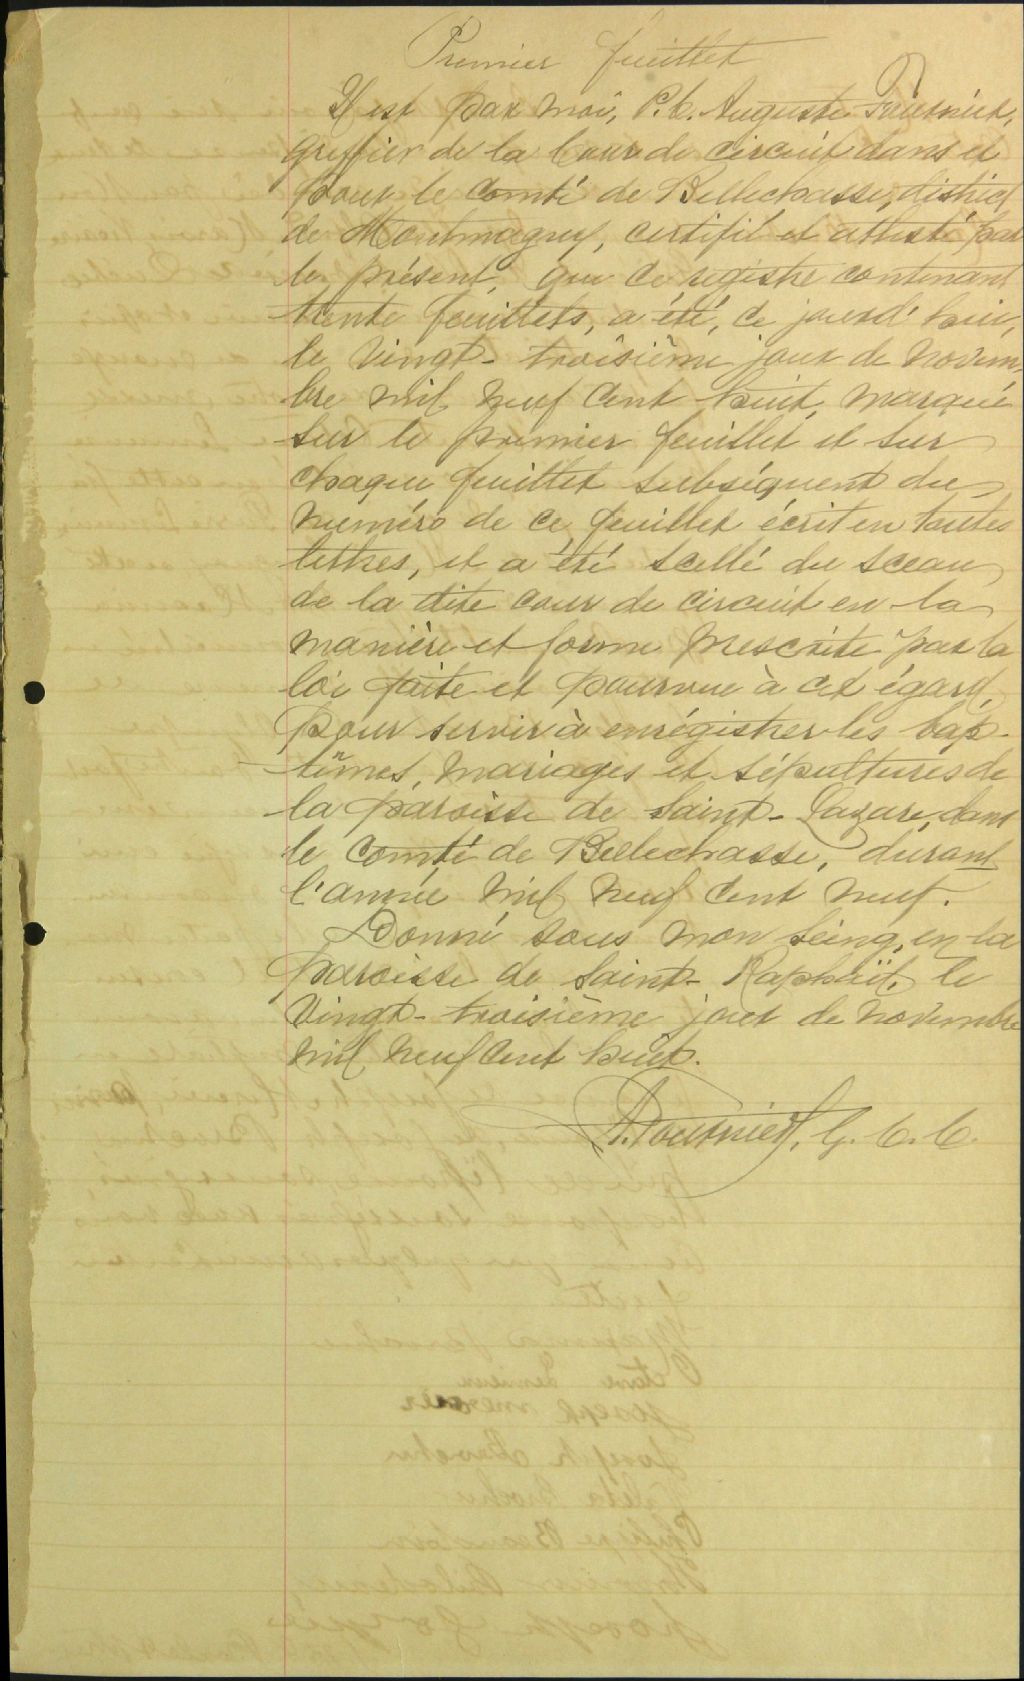 Premier feuillet
Il est par moi, P. C. Auguste Fournier,
Greffier de la Cour de circuit dans et
pour le Comté de Bellechasse, district
de Montmagny, certifié et attesté par
le présent, que ce registre contenant
trente feuillets, a été, ce jourd'hui,
le vingt-troisième jour de novem
bre mil neuf cent huit, marqué
sur le premier feuillet et sur
chaque feuillet subséquent du
numéro de ce feuillet écrit en toutes
lettres, et a été scellé du sceau
de la dite cour de circuit en la
manière et forme prescrite par la
loi faite et pourvue à cet égard,
pour servir à enrégistrer les bap-
têmes, mariages et sépultures de
la paroisse de Saint-Lazare, dans
le Comté de Bellechasse, durant
l'année mil neuf cent neuf.
Donné sous mon seing, en la
paroisse de Saint-Raphaël, le
vingt-troisième jour de novembre
mil neuf cent huit.
A. Fournier, G. C. C.